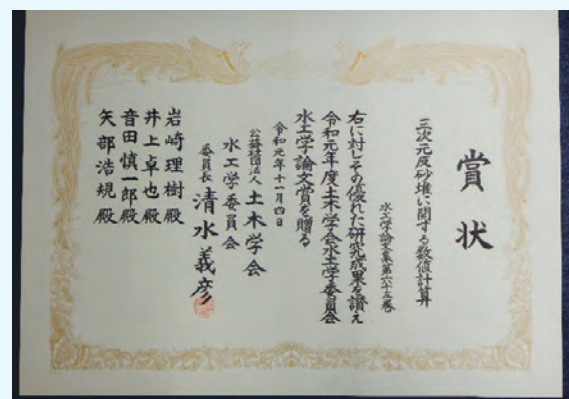 賞状
三次元反砂堆に関する数値計算
水工学論文集第六十三巻
右に対しその優れた研究成果を讃え
令和元年度土木学会水工学委員会
水工学論文賞を贈る
令和元年十一月四日
公益社団法人 土木学会
水工学委員会
委員長 清水義彦
岩崎理樹殿
井上卓也殿
音田慎一郎殿
矢部浩規殿